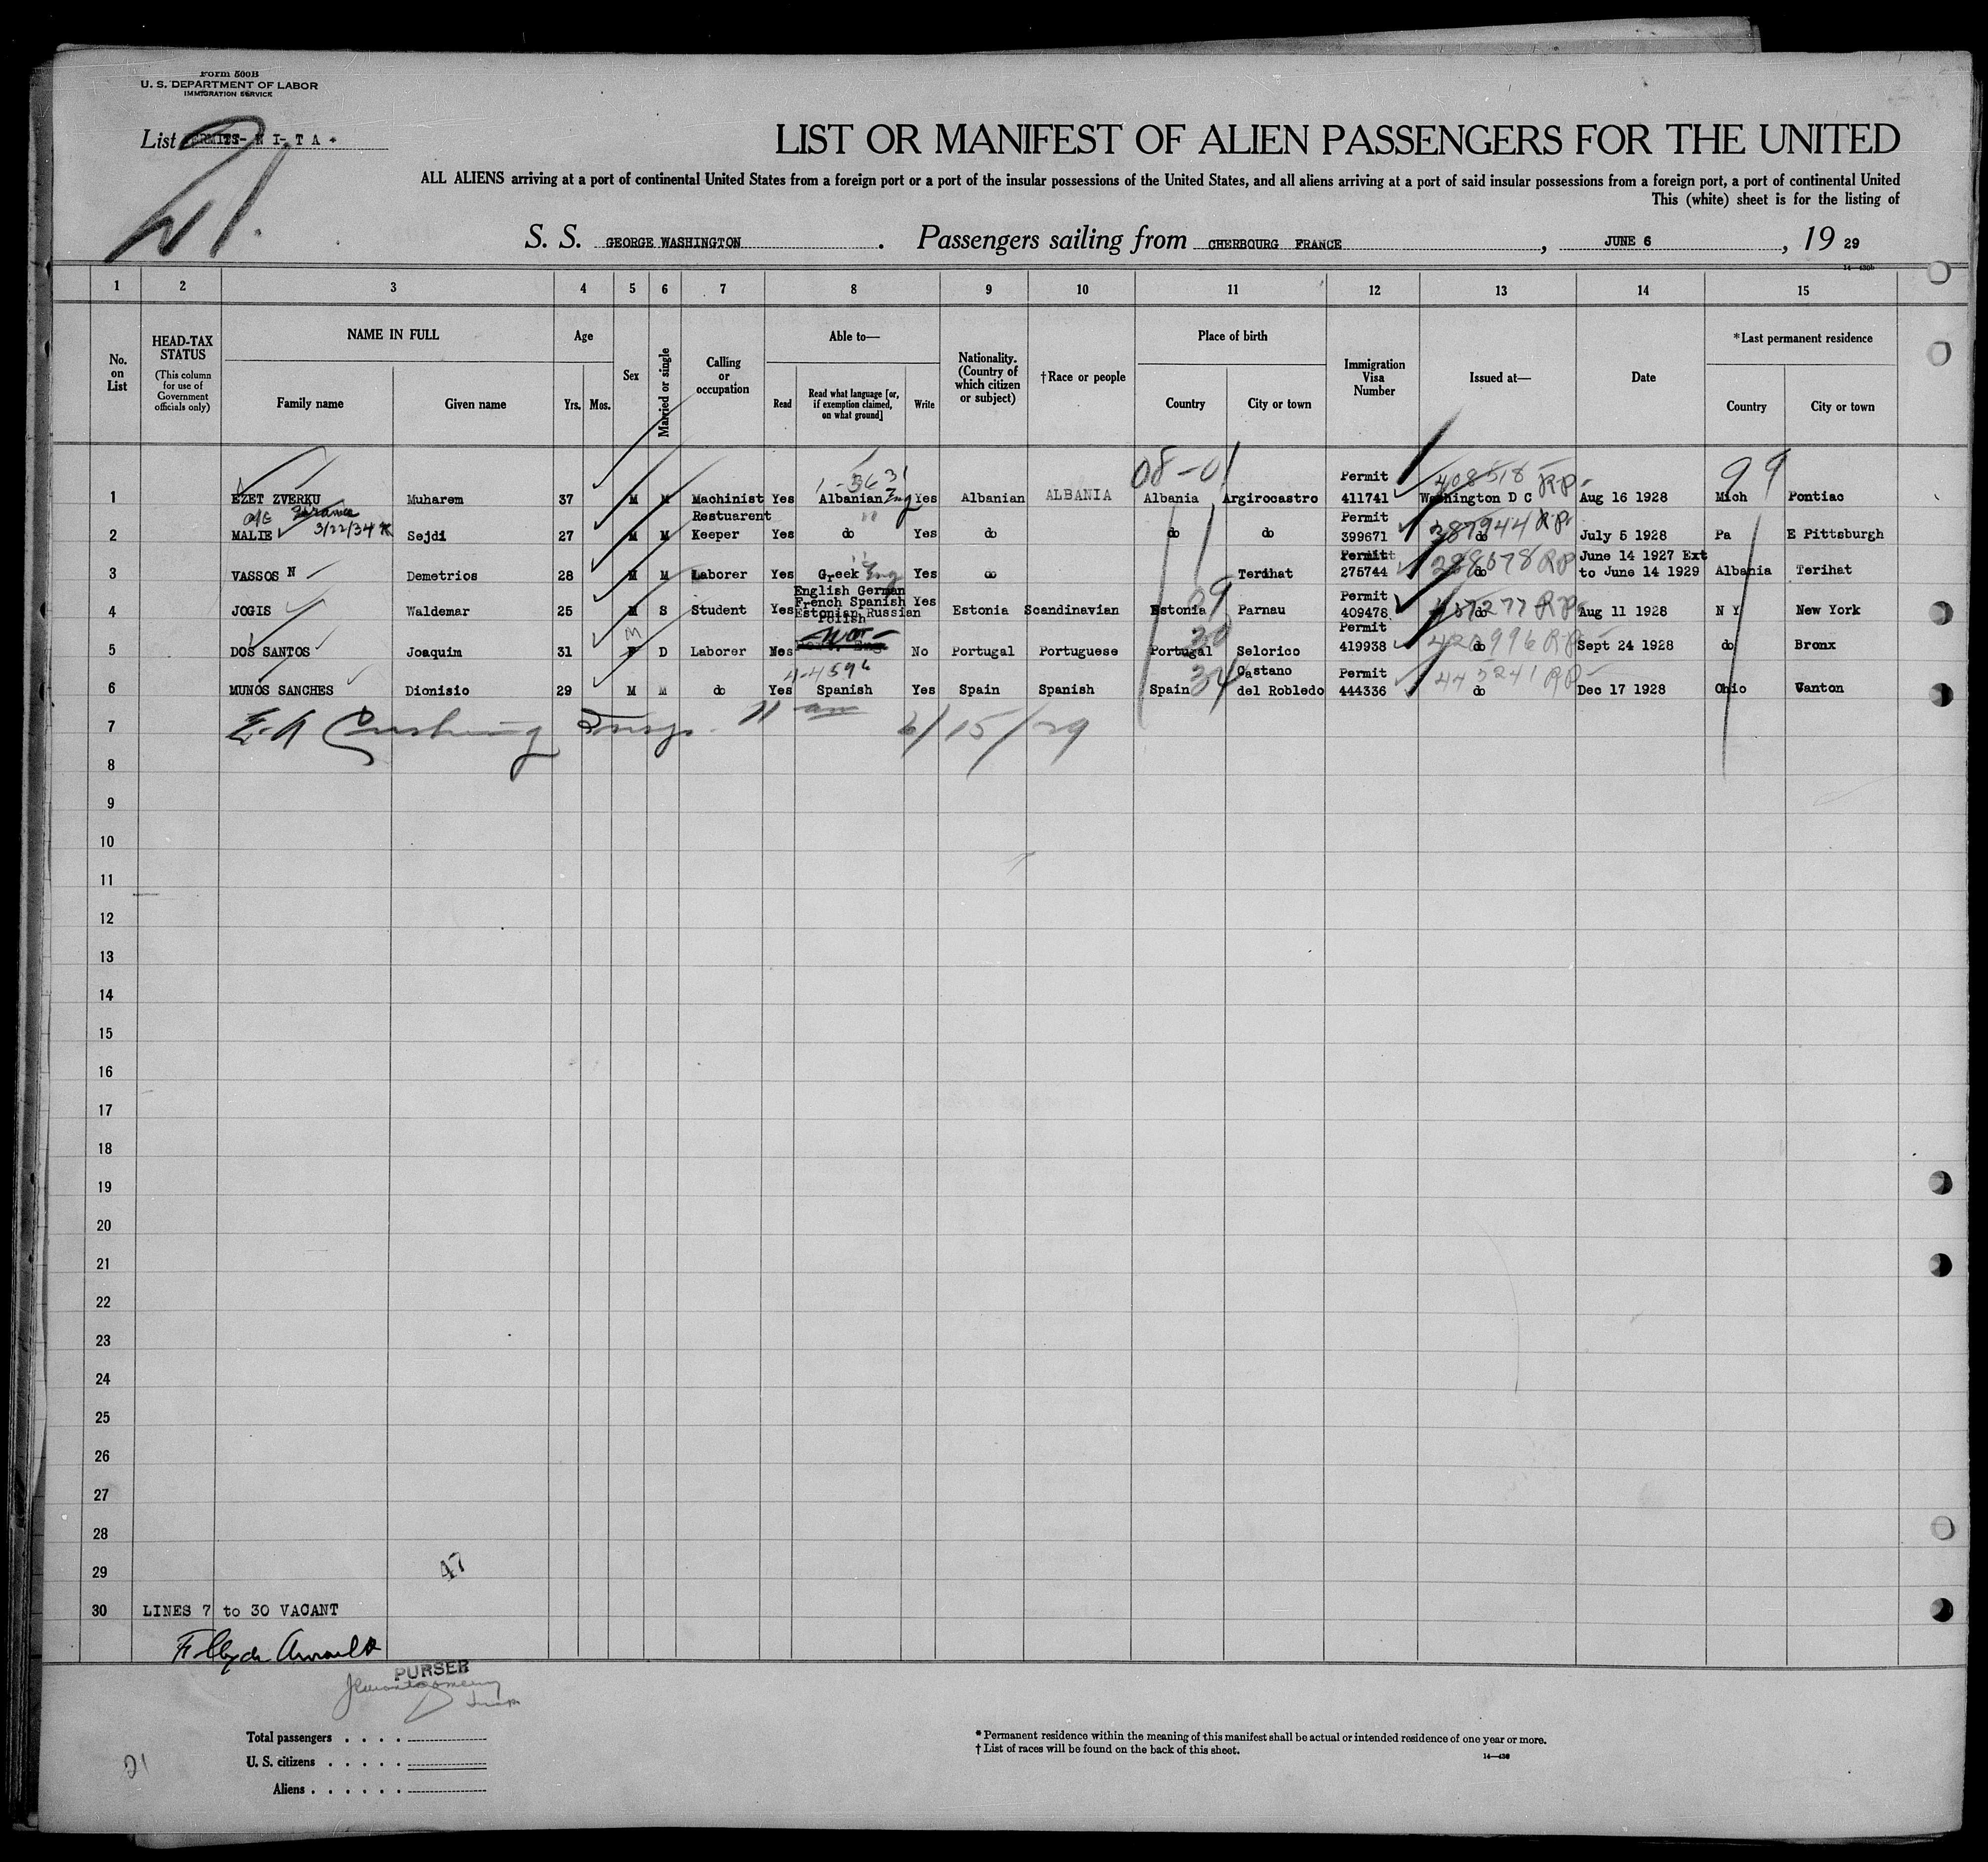 Form 500B
U. S. DEPARTMENT OF LABOR
IMMIGRATION SERVICE
List PERMITS- N I- T A
LIST OR MANIFEST OF ALIEN PASSENGERS FOR THE UNITED
ALL ALIENS arriving at a port of continental United States from a foreign port or a port of the insular possessions of the United States, and all aliens arriving at a port of said insular possessions from a foreign port, a port of continental United
This (white) sheet is for the listing of
S. S. GEORGE WASHINGTON . Passengers sailing from CHERBOURG FRANCE , JUNE 6 , 19 29
14—430b
1 2 3 4 5 6 7 8 9 10 11 12 13 14 15
No. on List
HEAD-TAX STATUS
(This column for use of Government officials only)
NAME IN FULL
Family name Given name
Age
Yrs. Mos.
Sex
Married or single
Calling or occupation
Able to—
Read
Read what language [or, if exemption claimed, on what ground]
Write
Nationality. (Country of which citizen or subject)
†Race or people
Place of birth
Country City or town
Immigration Visa Number
Issued at—
Date
*Last permanent residence
Country City or town
08-01 99
1 EZET ZVERKU Muharem 37 M M Machinist Yes Albanian Eng Yes Albanian ALBANIA Albania Argirocastro Permit 411741 Washington D C 408518 RP Aug 16 1928 Mich Pontiac
3/22/34
2 MALIE Sejdi 27 M M Restuarent Keeper Yes do Yes do do do Permit 399671 do 387944 RP July 5 1928 Pa E Pittsburgh
3 VASSOS N Demetrios 28 M M Laborer Yes Greek Eng Yes do Terihat Permit 275744 do 288678 RP June 14 1927 Ext to June 14 1929 Albania Terihat
4 JOGIS Waldemar 25 M S Student Yes English German French Spanish Estonian Russian Polish Yes Estonia Scandinavian Estonia 09 Parnau Permit 409478 do RP Aug 11 1928 N Y New York
5 DOS SANTOS Joaquim 31 M D Laborer No Portugal Portuguese Portugal 30 Selorico Permit 419938 do 420996 RP Sept 24 1928 do Bronx
6 MUNOS SANCHES Dionisio 29 M M do Yes Spanish Yes Spain Spanish Spain 34 Castano del Robledo Permit 444336 do 445241 RP Dec 17 1928 Ohio Canton
7 E. A Cushing Insp. 11 am 6/15/29
8
9
10
11
12
13
14
15
16
17
18
19
20
21
22
23
24
25
26
27
28
29 47
30 LINES 7 to 30 VACANT
PURSER
Total passengers . . . .
U. S. citizens . . . . .
Aliens . . . . . .
21
* Permanent residence within the meaning of this manifest shall be actual or intended residence of one year or more.
† List of races will be found on the back of this sheet.
14—430